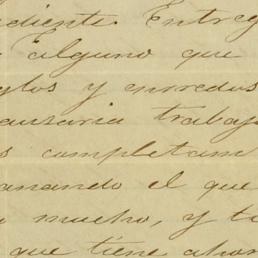 ediente. Entreg
Alguno que
y enredos
ausaria trabajo
s completam
anando el que
mucho, y ti
que tiene ahor